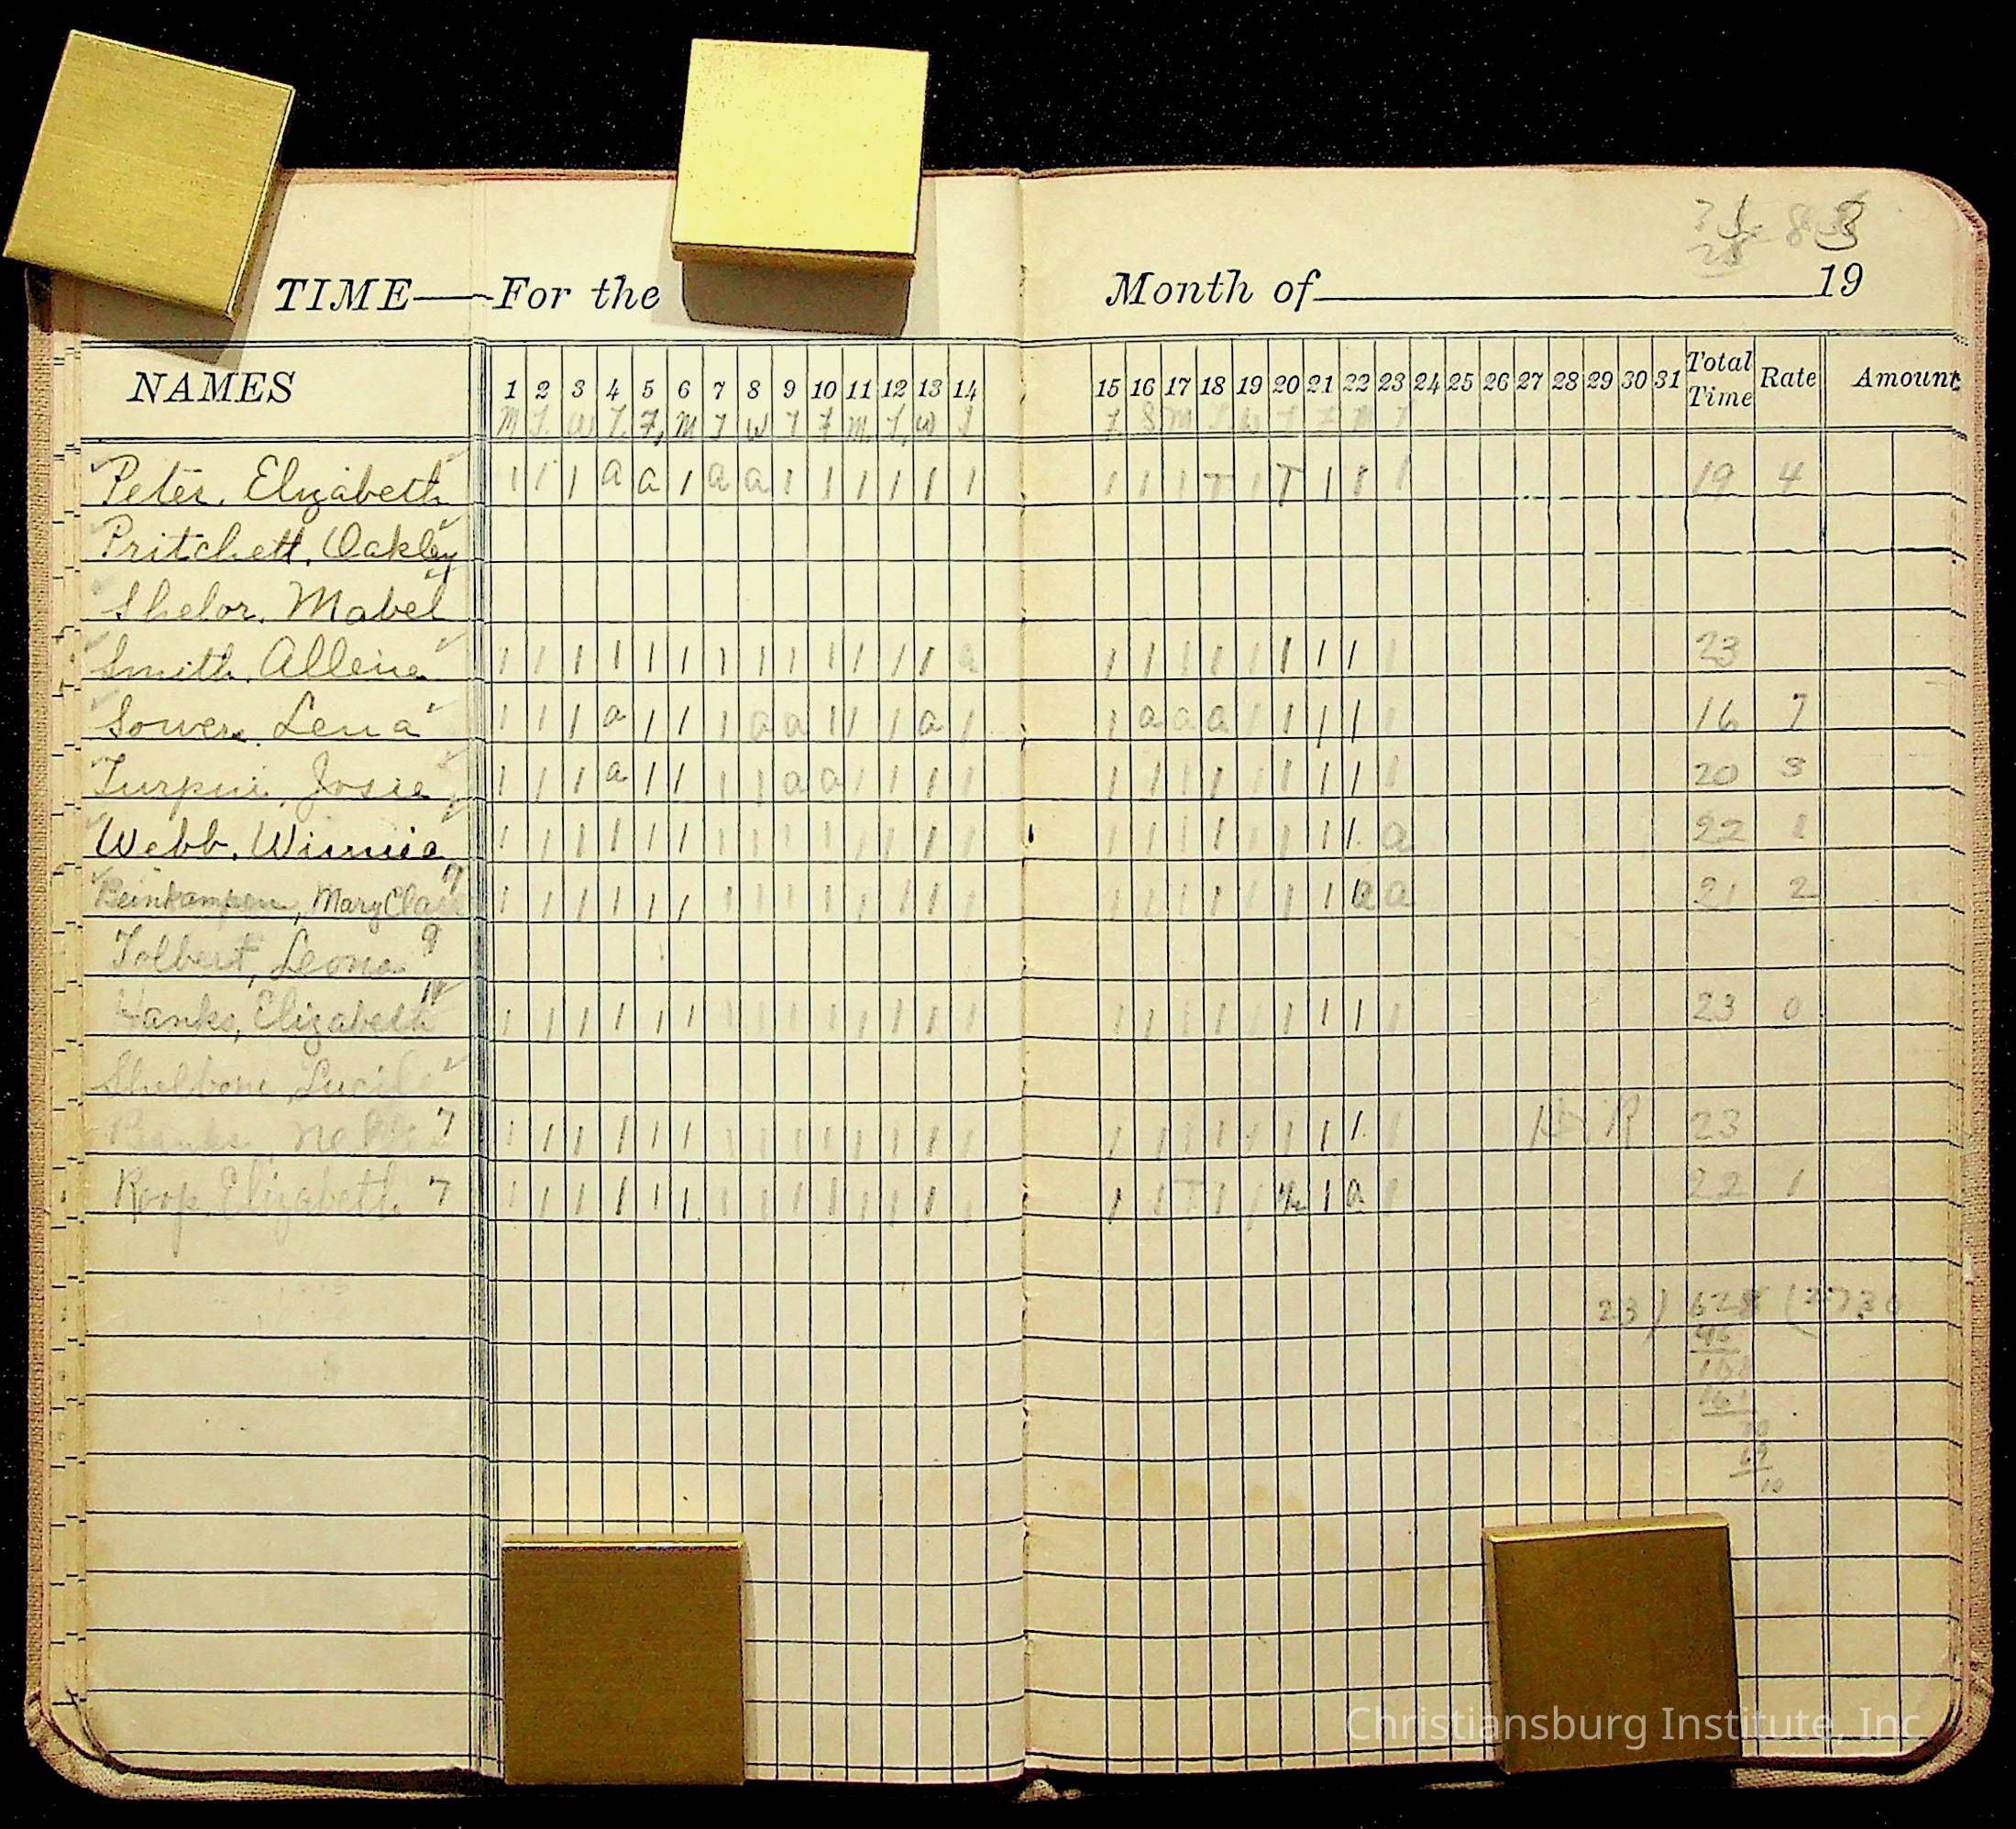 83
TIME—For the Month of 19
NAMES 1 2 3 4 5 6 7 8 9 10 11 12 13 14 15 16 17 18 19 20 21 22 23 24 25 26 27 28 29 30 31 Total Time Rate Amount
M T. W T. F, M T W T F M. T, W T F. S M T W T F M T
Peter, Elizabeth 1 1 1 a a 1 a a 1 1 1 1 1 1 1 1 1 T 1 T 1 1 1 19 4
Pritchett, Oakley
Shelor, Mabel
Smith, Allene 1 1 1 1 1 1 1 1 1 1 1 1 1 a 1 1 1 1 1 1 1 1 1 23
Sower, Lena 1 1 1 a 1 1 1 a a 1 1 1 a 1 1 a a a 1 1 1 1 1 16 7
Turpin, Josie 1 1 1 a 1 1 1 1 a a 1 1 1 1 1 1 1 1 1 1 1 1 1 20 3
Webb, Winnie 1 1 1 1 1 1 1 1 1 1 1 1 1 1 1 1 1 1 1 1 1 1 a 22 1
Beinkampen, Mary Clare 7 1 1 1 1 1 1 1 1 1 1 1 1 1 1 1 1 1 1 1 1 1 a a 21 2
Tolbert, Leona 9
Hanks, Elizabeth 1 1 1 1 1 1 1 1 1 1 1 1 1 1 1 1 1 1 1 1 1 1 1 23 0
Lucile
Banks, Nellie 7 1 1 1 1 1 1 1 1 1 1 1 1 1 1 1 1 1 1 1 1 1 1 1 R 23
Roop, Elizabeth 7 1 1 1 1 1 1 1 1 1 1 1 1 1 1 1 1 T 1 1 1 a 1 22 1
23 ) 628 (27 30
46
168
161
70
69
10
Christiansburg Institute, Inc